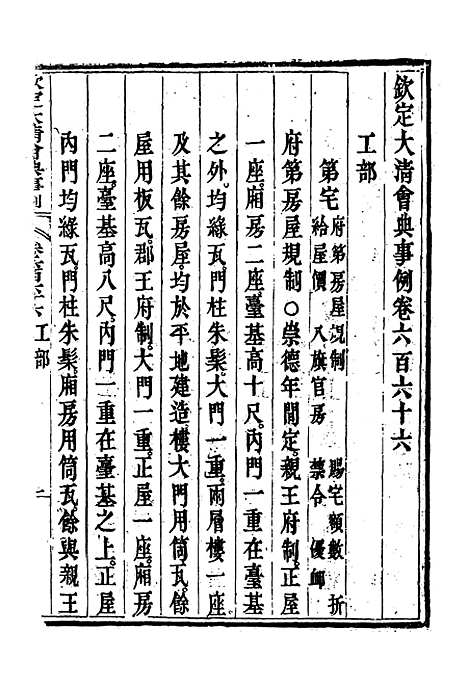 欽定大清會典事例卷六百六十六
工部
第宅 府第房屋規制 賜宅額數 折
給屋價 八旗官房 禁令 優卹
府第房屋規制○崇德年間定親王府制正屋
一座廂房二座臺基高十尺內門一重在臺基
之外均綠瓦門柱朱髹大門一重兩層樓一座
及其餘房屋均於平地建造樓大門用筒瓦餘
屋用板瓦郡王府制大門一重正屋一座廂房
二座臺基高八尺內門一重在臺基之上正屋
內門均綠瓦門柱朱髹廂房用筒瓦餘與親王
欽定大清會典事例 卷六百六十六 工部 一